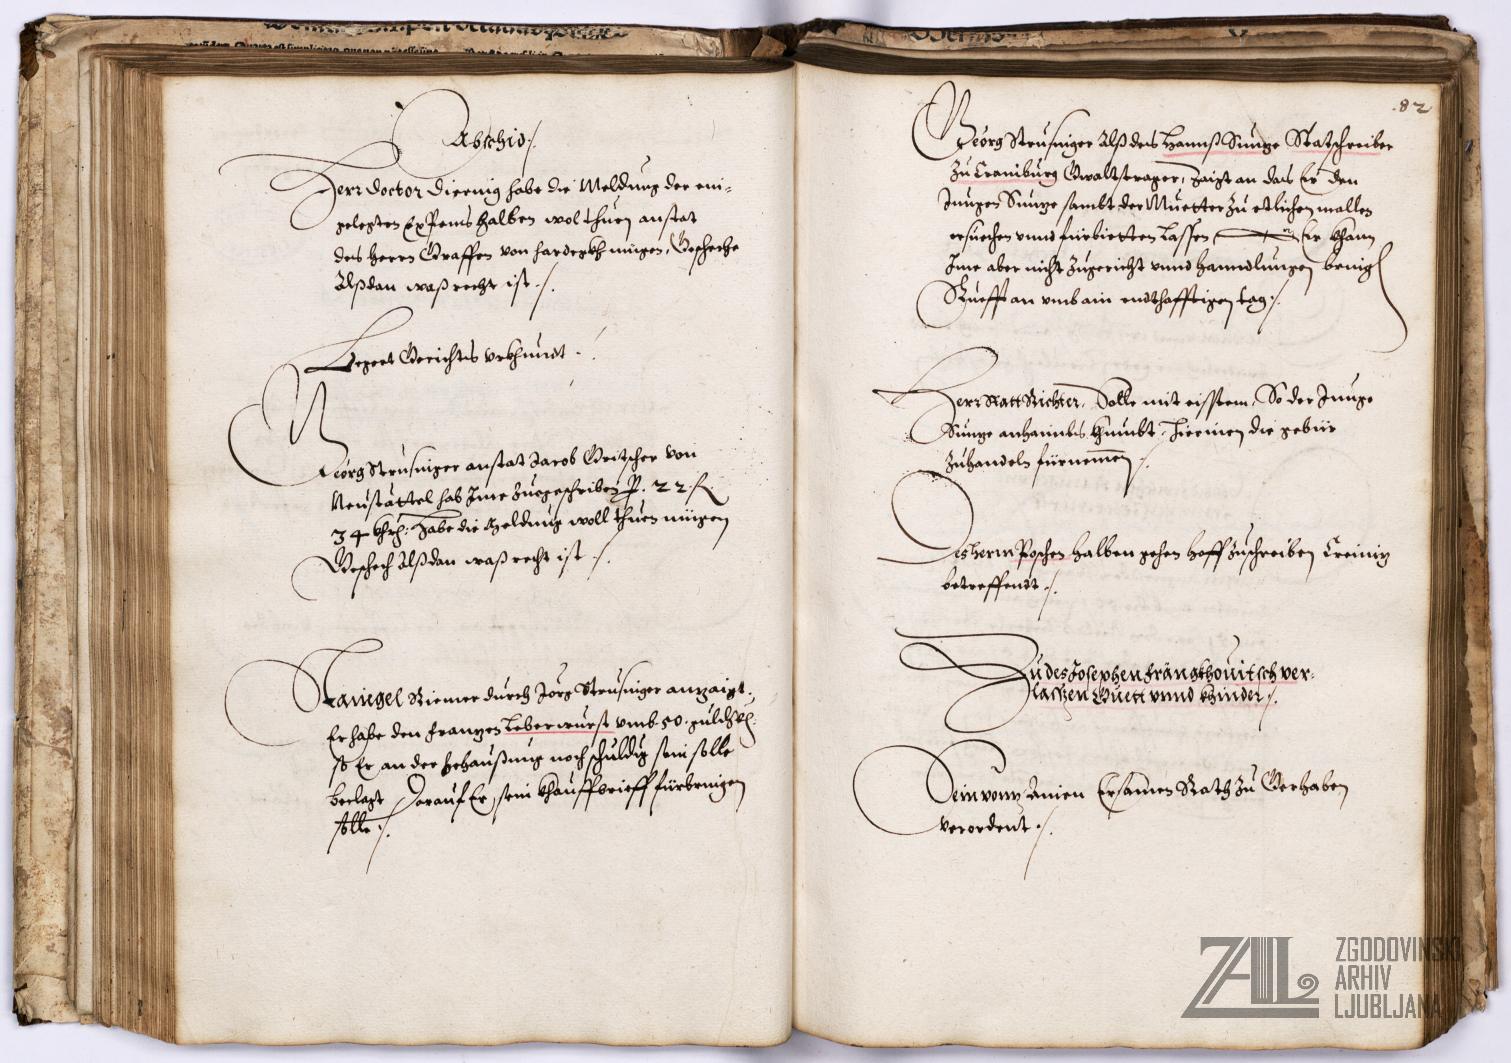 Abschid ./.
Herr Doctor Diernig habe die Meldung der ein-
gelegten Expens halben wol thuen anstat
des Herrn Graffen von Hardegkh mügen, Geschehe
Alßdan waß recht ist ./.
Legert Gerichts Urkhundt ./.
Georg Strusniger anstat Jacob Gritscher von
Neustättel hab Ime zuegeschriben P. 22. fl
34 khr: habe die Meldung woll thuen mügen
Geschech Alßdan waß recht ist ./.
Stanigel Riemer durch Jörg Strusniger anzaigt.
Er habe den Franzen Leberwurst umb 50. guld. Rh:
so Er an der Behaußung noch schuldig sein solle
beclagt Darauf Er, sein Khauffbrieff fürbringen
solle ./.
82
Georg Strusniger Alß des Hannß Sunge Statschreiber
zu Crainburg Gwaltstrager, zaigt an das Er den
Jungen Sunge sambt der Muetter zu etlichen mallen
ersuechen unnd fürbietten Lassen, Er khann
Ime aber nicht zu gericht unnd hanndlungen bringen
Rueff an umb ain endthafftigen tag ./.
Herr Statt Richter, Solle mit eisstem, So der Junge
Sunge anhaimbs khumbt, hierinen die gebür
zuhandeln fürnemen ./.
Des herrn Poschen halben gehen Hoff zuschreiben Creinig
betreffendt ./.
Zu des Josephen Frängkhouitsch ver-
lassen Guett unnd khinder ./.
Sein vonn Ainen Ersamen Rath zu Gerhaben
verordent ./.
ZAL
ZGODOVINSKI
ARHIV
LJUBLJANA